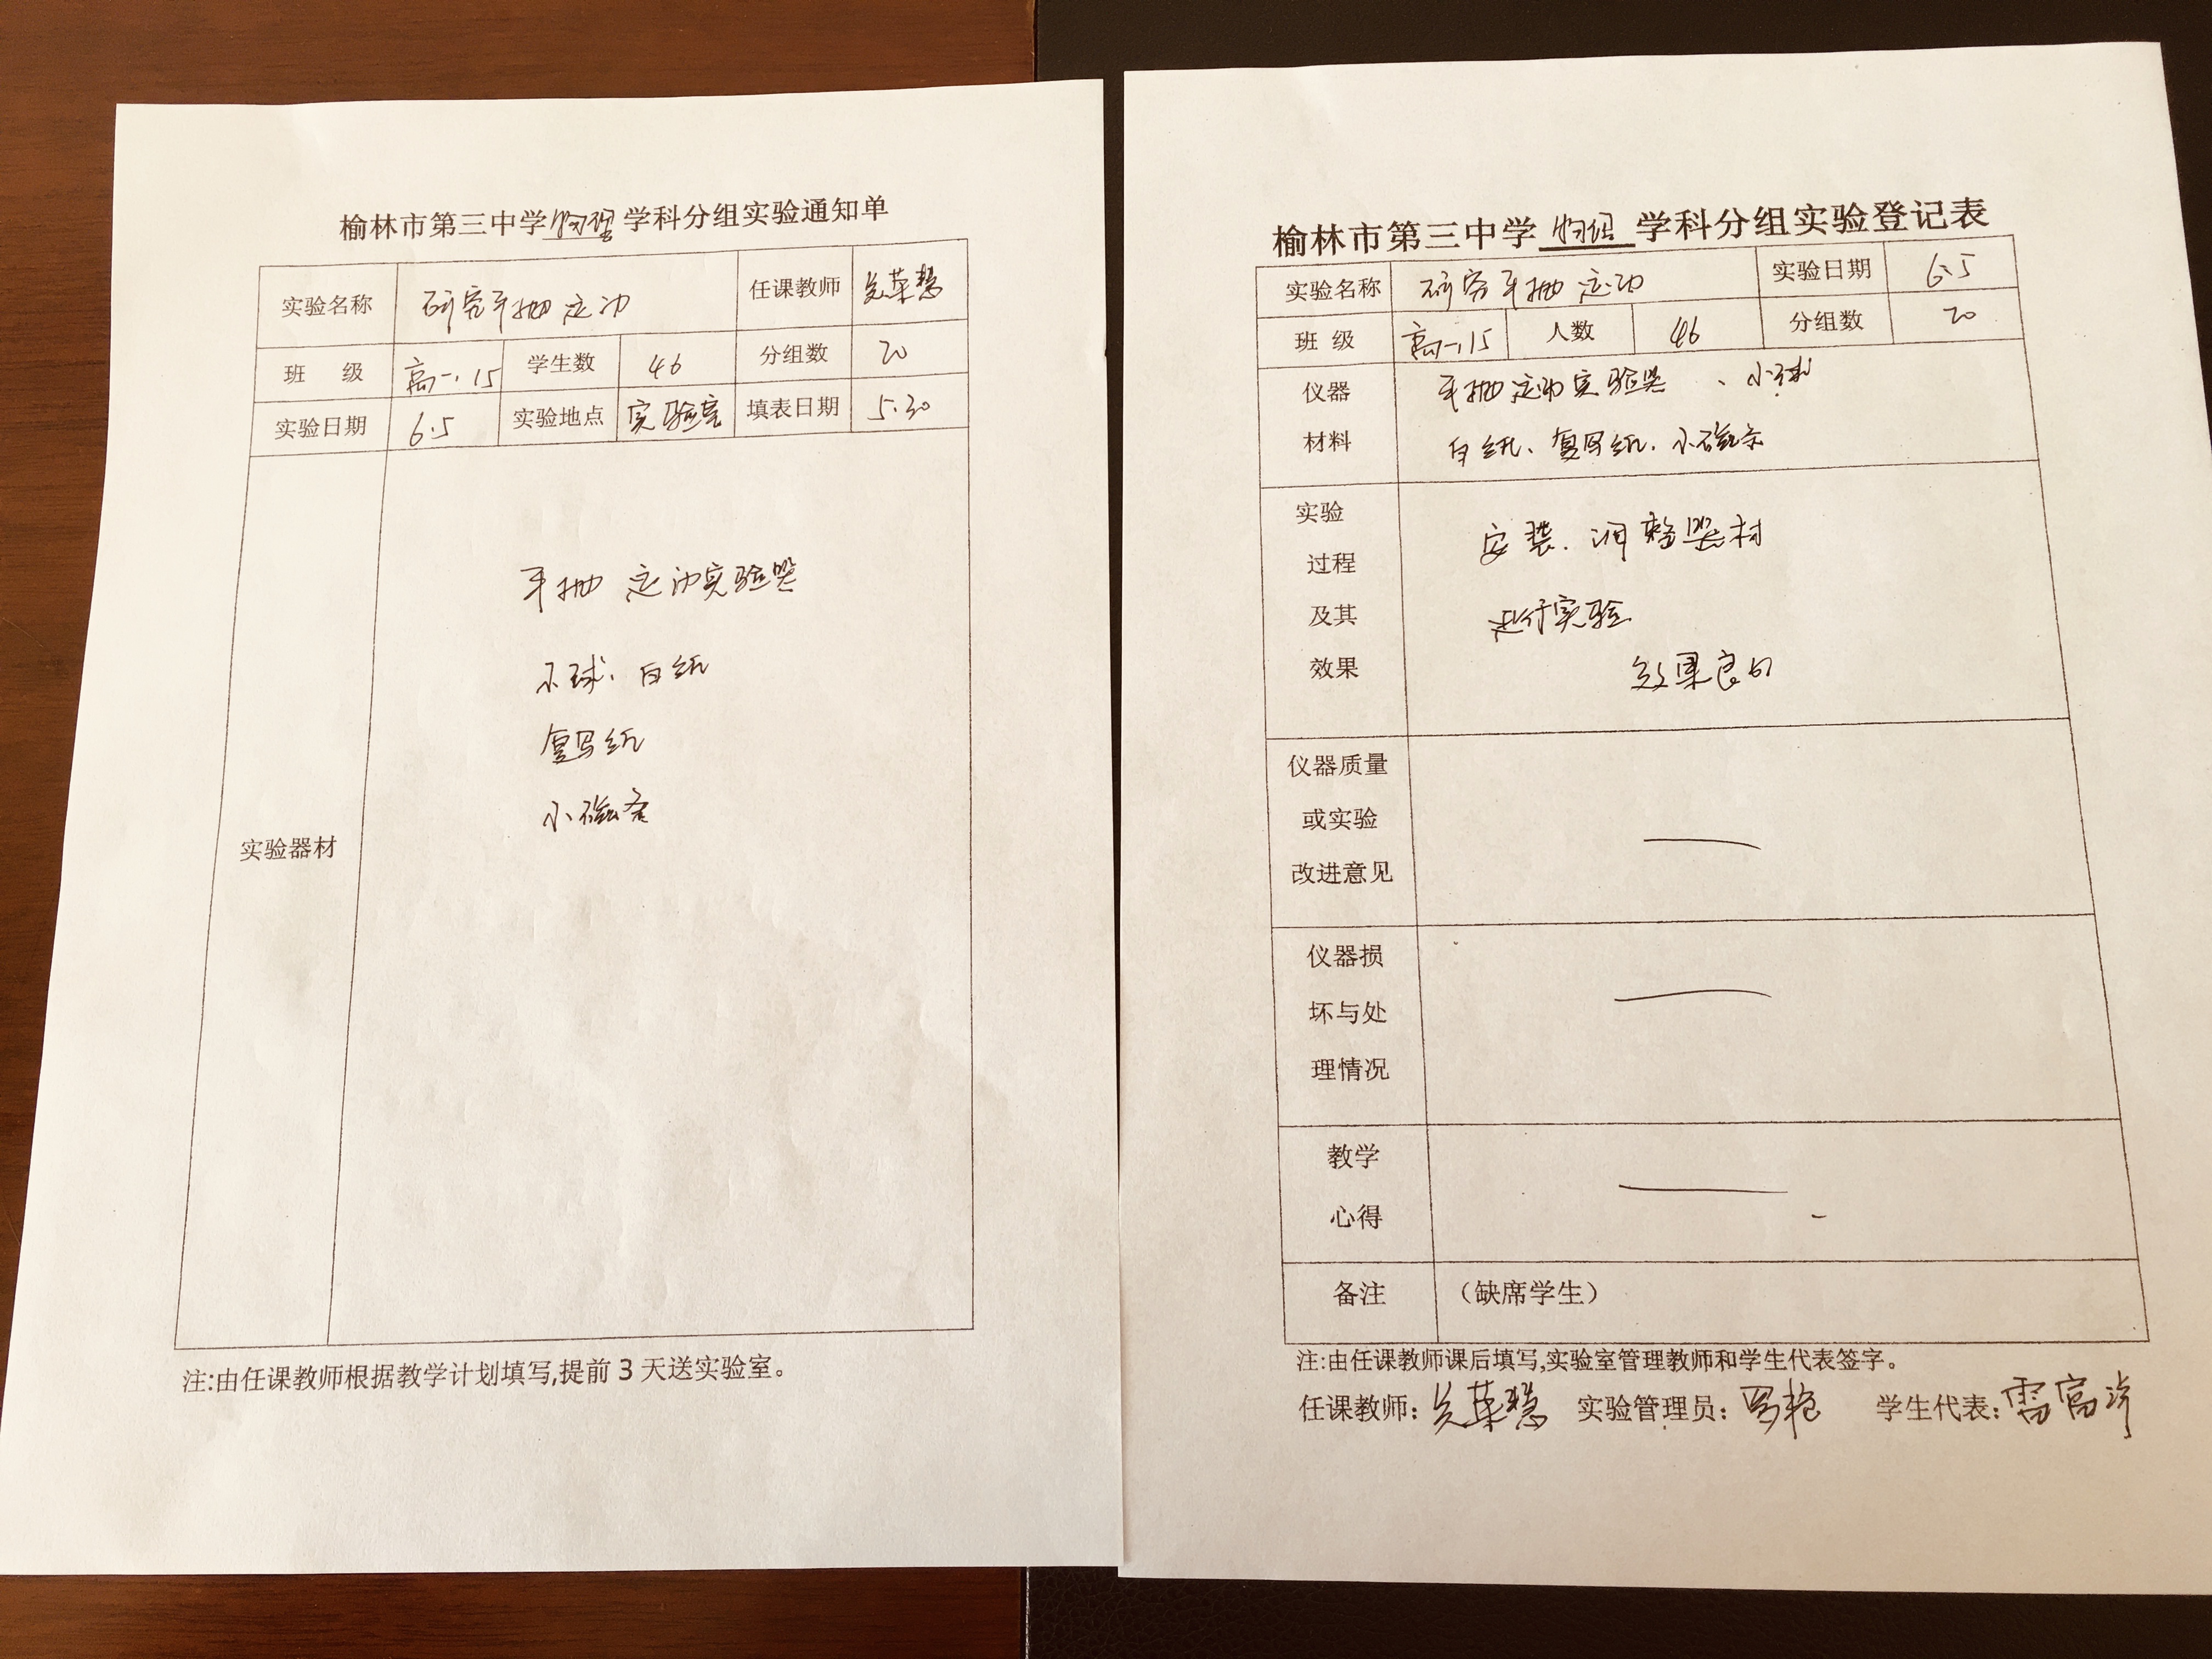 榆林市第三中学物理学科分组实验通知单
实验名称 研究平抛运动 任课教师 荣慧
班 级 高一.15 学生数 46 分组数 20
实验日期 6.5 实验地点 实验室 填表日期 5.30
实验器材
平抛运动实验器
小球、白纸
复写纸
小磁条
注:由任课教师根据教学计划填写,提前3天送实验室。
榆林市第三中学物理学科分组实验登记表
实验名称 研究平抛运动 实验日期 6.5
班 级 高一.15 人数 46 分组数 20
仪器 平抛运动实验器、小球
材料 白纸、复写纸、小磁条
实验 安装、调整器材
过程
及其 进行实验
效果 效果良好
仪器质量
或实验
改进意见
仪器损
坏与处
理情况
教学
心得
备注 （缺席学生）
注:由任课教师课后填写,实验室管理教师和学生代表签字。
任课教师: 荣慧 实验管理员: 学生代表: 雷富